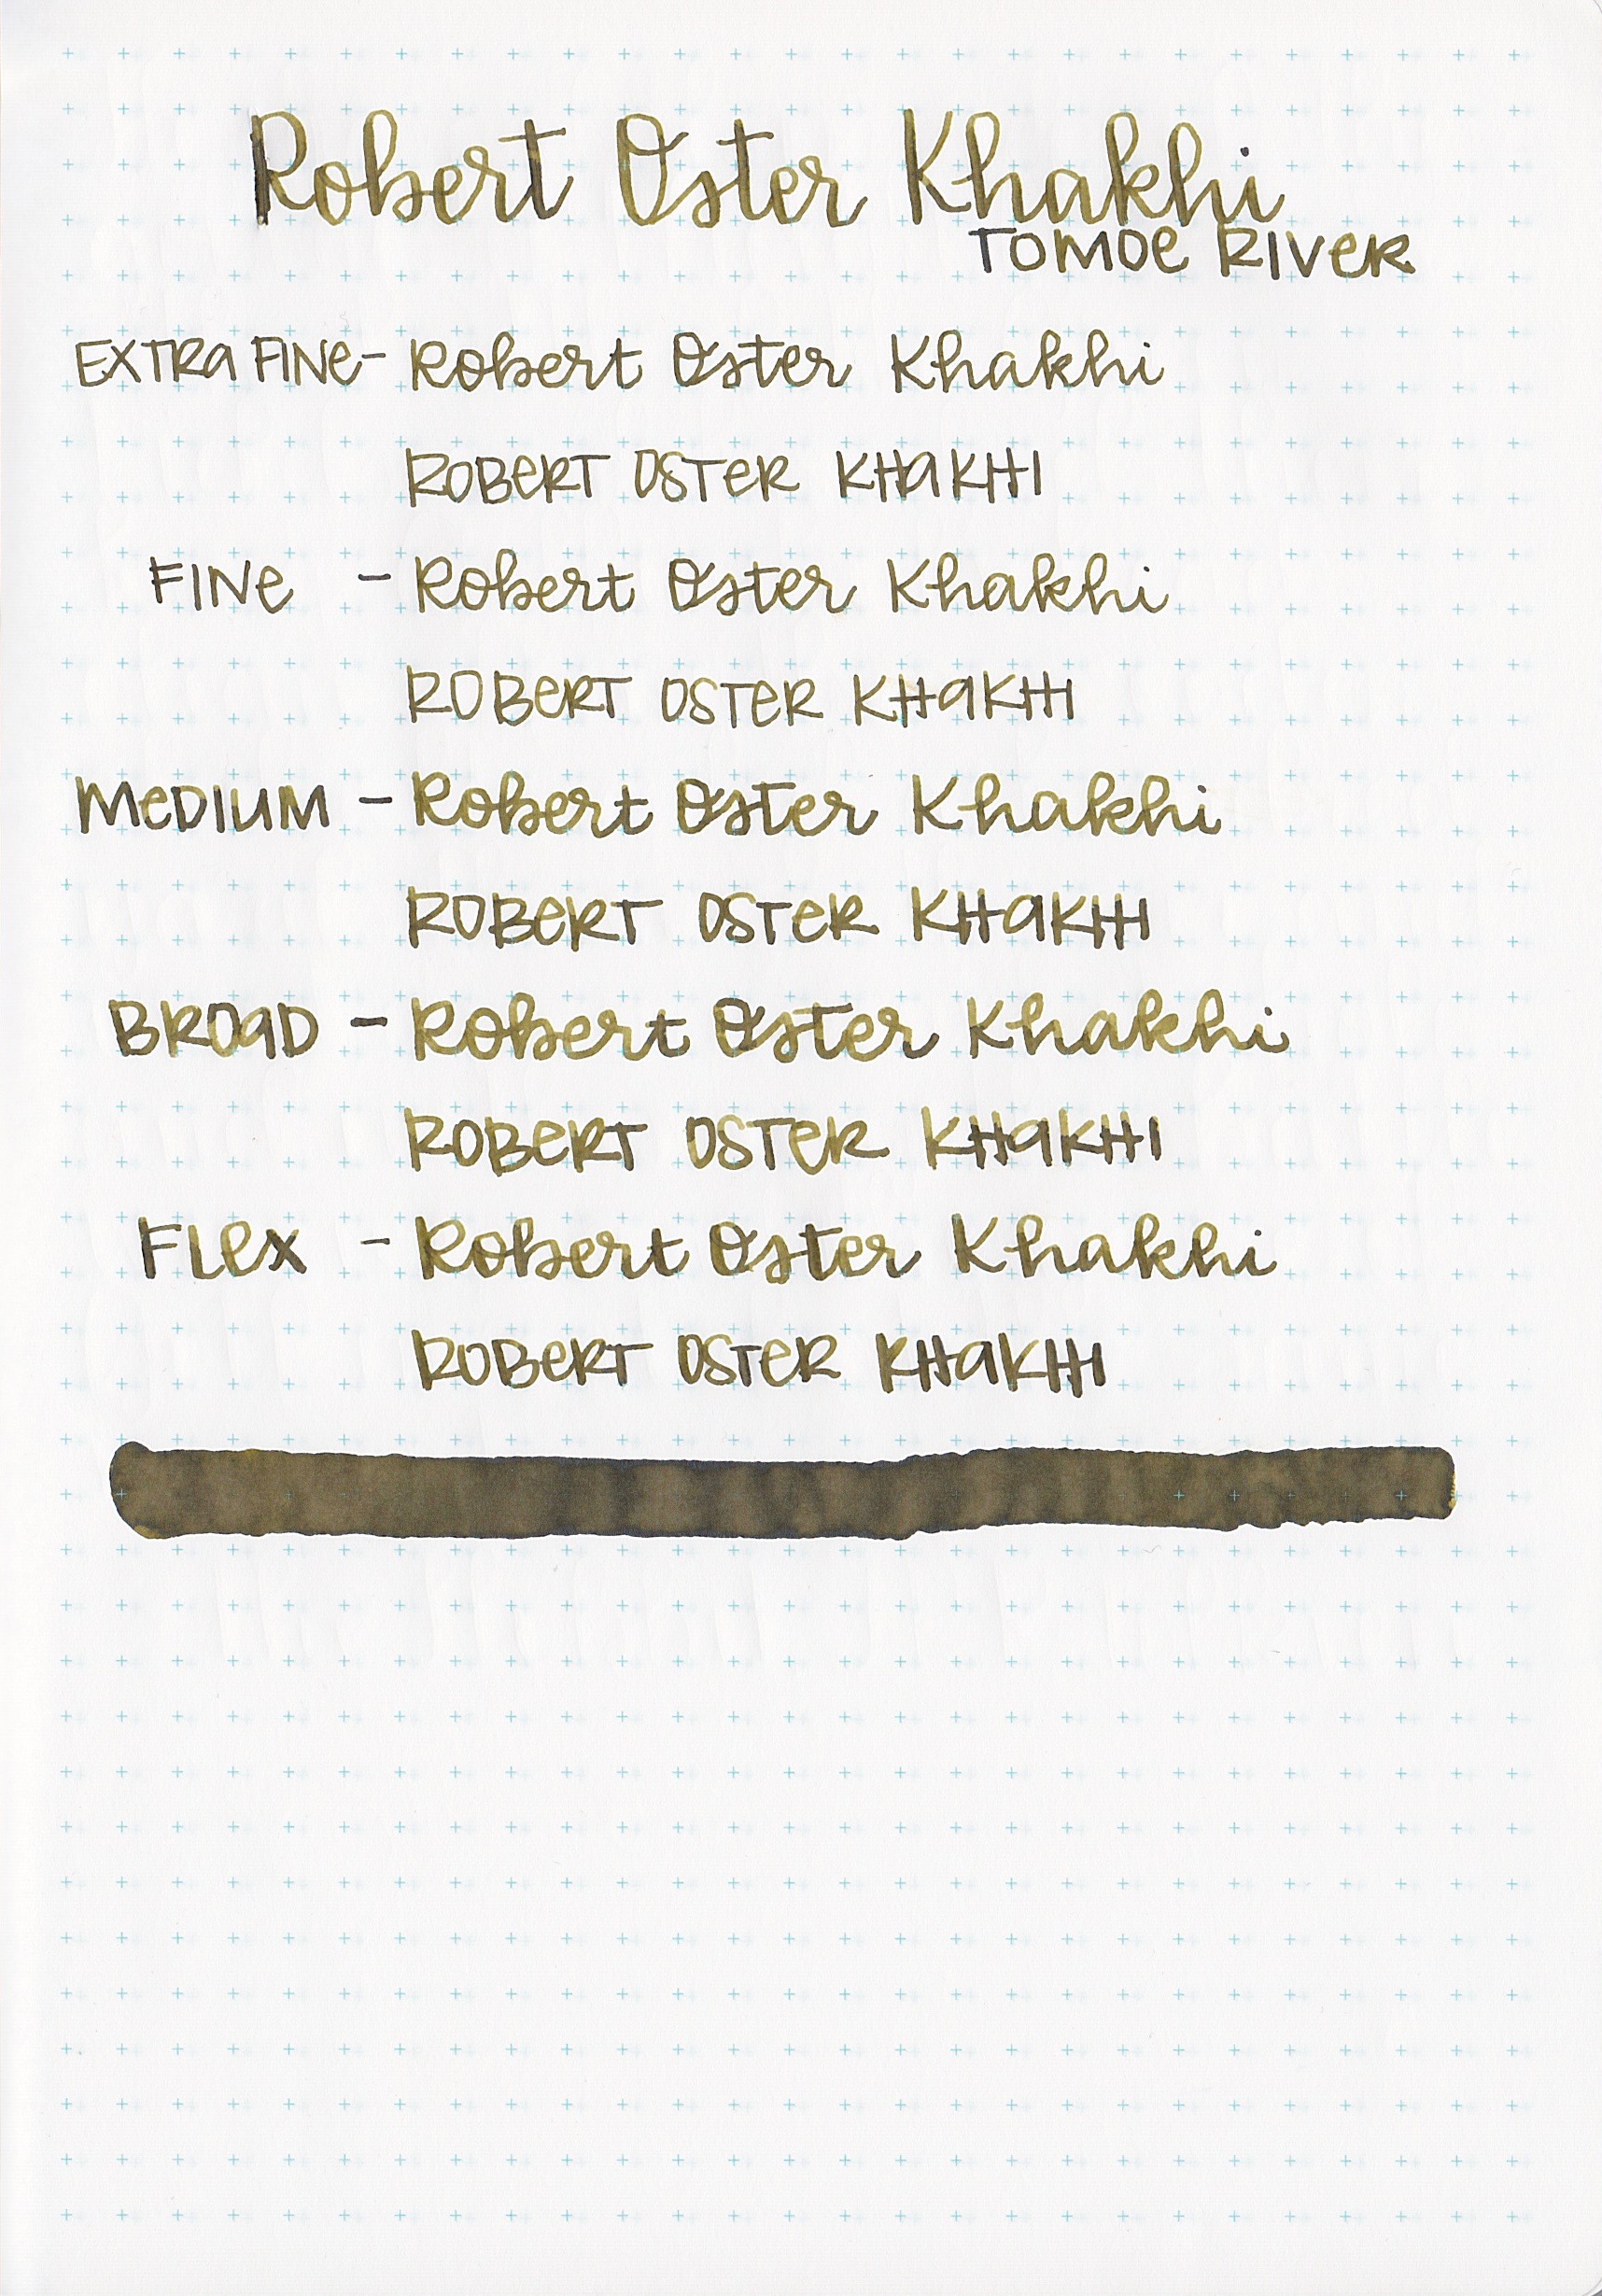 Robert Oster Khakhi
TOMOe RIVeR
EXTRa FINe - Robert Oster Khakhi
ROBeRT OSTeR KHaKHI
FINe - Robert Oster Khakhi
ROBeRT OSTeR KHaKHI
MeDIUM - Robert Oster Khakhi
ROBeRT OSTeR KHaKHI
BROaD - Robert Oster Khakhi
ROBeRT OSTeR KHaKHI
FLex - Robert Oster Khakhi
ROBeRT OSTeR KHaKHI